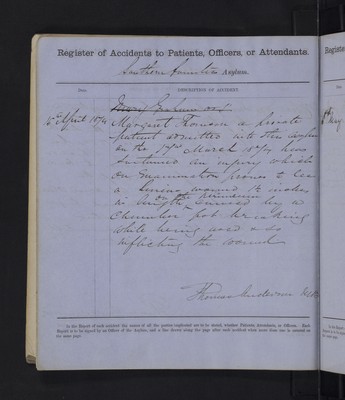 Register of Accidents to Patients, Officers, or Attendants.
Southern Counties Asylum.
Date. DESCRIPTION OF ACCIDENT.
6th April 1874 Margaret Thomson a private
patient admitted into this asylum
on the 17th March 1874 have
sustained an injury which
on examination proves to be
a wound 1½ inches
on the perineum
in length, caused by a
Chamber pot breaking
while being used & so
inflicting the wound
Thomas Anderson
In the Report of each accident the names of all the parties implicated are to be stated, whether Patients, Attendants, or Officers. Each
Report is to be signed by an Officer of the Asylum, and a line drawn along the page after each accident when more than one is entered on
the same page.
Register